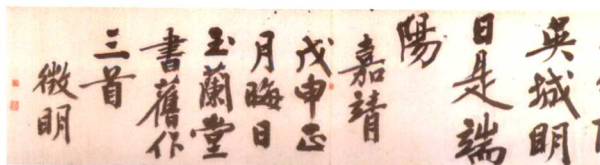 吳城明
日是端
陽
嘉靖
戊申正
月晦日
玉蘭堂
書舊作
三首
徵明